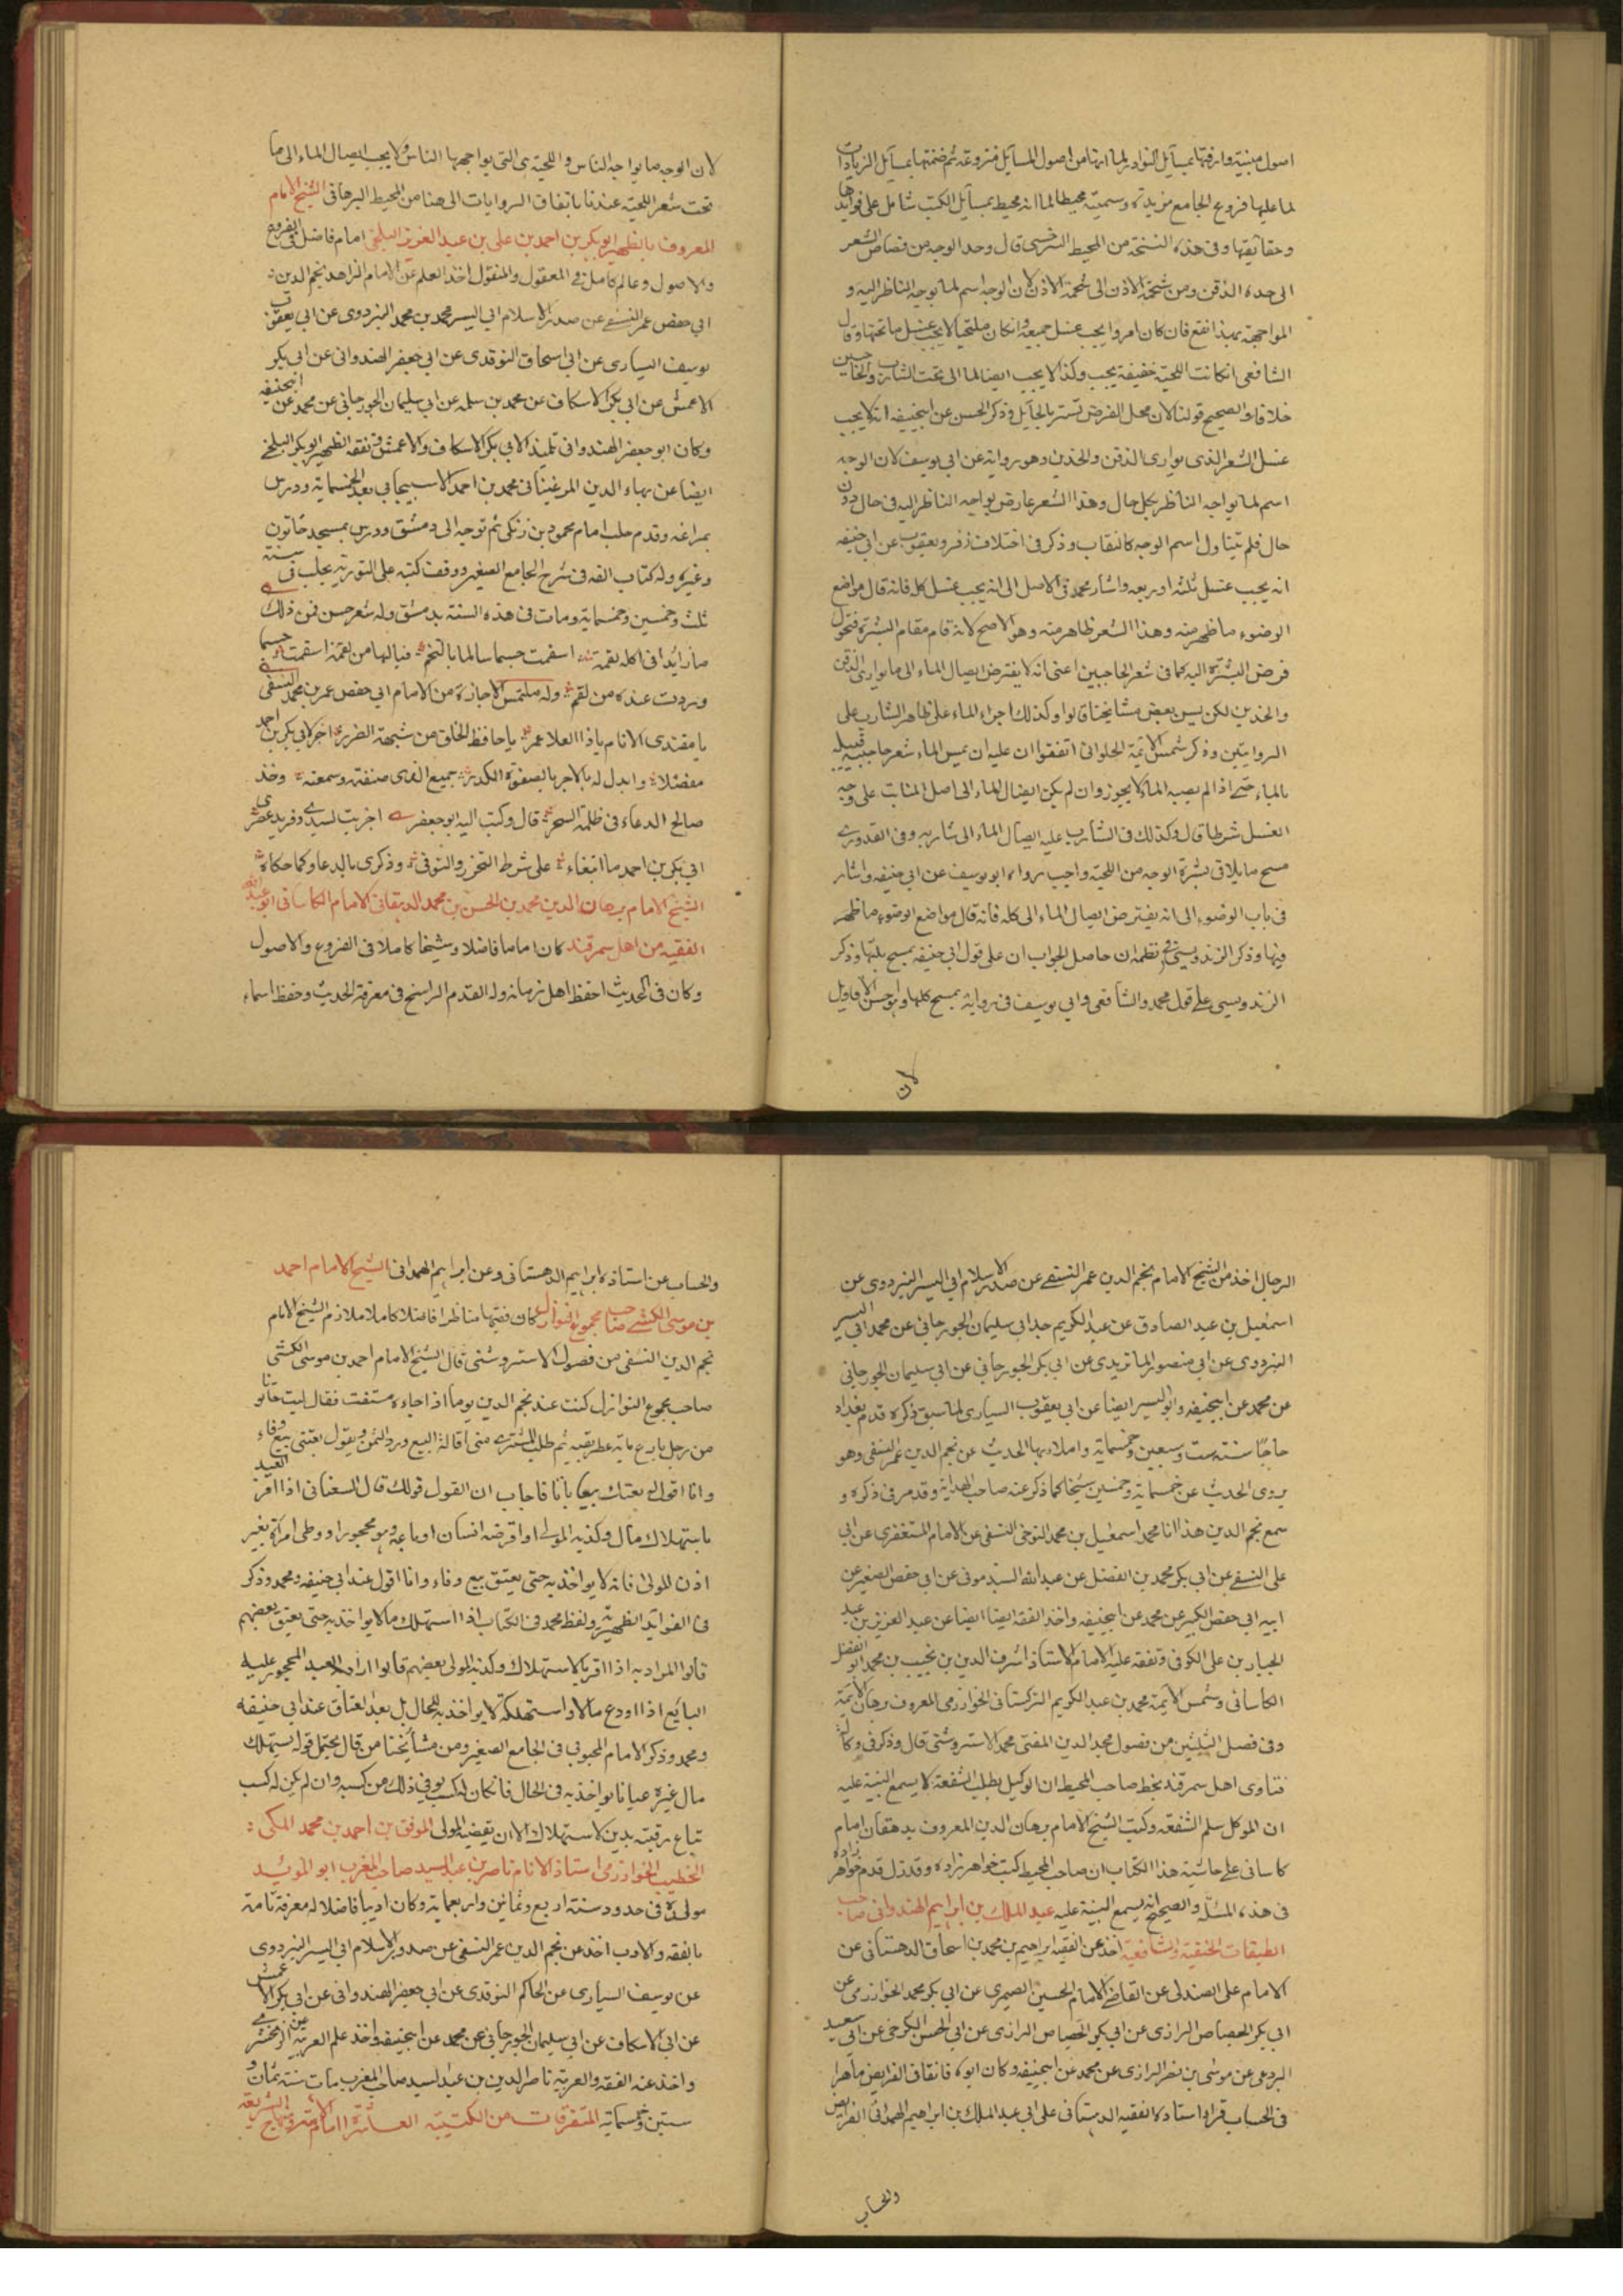 اصول مبنية واردفتها بمسايل النوادر لما انها من اصول المسايل منزوعة ثم ضمنتها بمسايل الزيادات
لما عليها فروع الجامع مزيدة وسميته محيطا لما انه محيط بمسايل الكتب شامل على فوايدها
وحقايقها وفى هذه النسخة من المحيط السرخسى قال وحد الوجه من قصاص الشعر
الى حده الذقن ومن شحمة الاذن الى شحمة الاذن لان الوجه اسم لما يوجه الناظر اليه و
المواجهة بهذا تقع فان كان امردا يجب غسل جميعه وان كان ملتحيا لا يجب غسل ما تحتها وقال
الشافعى ان كانت اللحية خفيفة يجب وكذا لا يجب ايصال الماء الى تحت الشارب والحاجبين
خلافا والصحيح قولنا لان محل الفرض تستر بالحايل وذكر الحسن عن ابيحنيفه انه لا يجب
غسل الشعر الذى يوارى الذقن والخدين وهو رواية عن ابى يوسف لان الوجه
اسم لما يواجه الناظر بكل حال وهذا الشعر عارض يواجه الناظر اليه فى حال دون
حال فلم يتناول اسم الوجه كالنقاب وذكر فى اختلاف زفر ويعقوب عن ابى حنيفه
انه يجب غسل ثلثه او ربعه واشار محمد فى الاصل الى انه يجب غسل كله فانه قال مواضع
الوضوء ما ظهر منه وهذا الشعر ظاهر منه وهو الاصح لانه قام مقام البشرة فتحول
فرض البشرة اليه كما فى شعر الحاجبين اعنى انه لا يفترض ايصال الماء الى ما يوارى الذقن
والخدين لكن بعض مشايخنا قالوا وكذلك اجراء الماء على ظاهر الشارب على
الروايتين وذكر شمس الائمة الحلوانى اتفقوا ان عليه ان يمس الماء شعر حاجبيه
بالماء حتى اذا لم يصبه الماء لا يجوز وان لم يكن ايصال الماء الى اصل المنابت على وجه
الغسل شرطا قال وكذلك فى الشارب عليه ايصال الماء الى شاربه وفى القدورى
مسح ما يلاقى بشرة الوجه من اللحية واجب رواه ابو يوسف عن ابى حنيفه واشار
فى باب الوضوء الى انه يفترض ايصال الماء الى كله فانه قال مواضع الوضوء ما ظهر
فيها وذكر الزندويستى فى نظمه ان حاصل الجواب ان على قول ابى حنيفه يمسح ثلثها وذكر
الزندويسى على قول محمد والشافعى وابى يوسف فى رواية يمسح كلها وهو احسن الاقاويل
لان
لان الوجه ما يواجه الناس واللحية هى التى يواجهها الناس ولا يجب ايصال الماء الى ما
تحت شعر اللحية عندنا باتفاق الروايات الى هنا من المحيط البرهانى الشيخ الامام
المعروف بالظهير ابو بكر بن احمد بن على بن عبد العزيز البلخى امام فاضل فى الفروع
والاصول وعالم كامل فى المعقول والمنقول اخذ العلم عن الامام الزاهد نجم الدين
ابى حفص عمر النسفى عن صدر الاسلام ابى اليسر محمد بن محمد البزدوى عن ابى يعقوب
يوسف السيارى عن ابى اسحاق النوقدى عن ابى جعفر الهندوانى عن ابى بكر
الاعمش عن ابى بكر الاسكاف عن محمد بن سلمه عن ابى سليمان الجوزجانى عن محمد عن ابيحنيفه
وكان ابو جعفر الهندوانى تلميذ لابى بكر الاسكاف والاعمش وتفقه الظهير ابو بكر البلخى
ايضا عن بهاء الدين المرغينانى محمد بن احمد الاسبيجابى بعد الخمسماية ودرس
بمراغه وقدم حلب امام محمود بن زنكى ثم توجه الى دمشق ودرس بمسجد خاتون
وغيره وله كتاب الفه فى شرح الجامع الصغير ووقف كتبه على النورية بحلب فى سنة
ثلث وخمسين وخمسماية ومات فى هذه السنة بدمشق وله شعر حسن فمن ذلك
ما زائدا فى اكله لقمة اسقمت جسما سالما بالتخم فيالها من لقمة اسقمت جسما
وردت عنده من لقم وله ملتمس الاجازة من الامام ابى حفص عمر بن محمد النسفى
يا مقتدى الانام يا ذا العلا عمر يا حافظ الخلق من شبهة الضرر اجز لابى بكر بن احمد
مفضلا وابدل له بالاجر بالصفوة الكدر جميع الذى صنفته وسمعته وخذ
صالح الدعاء فى ظلمة السحر قال وكتب اليه ابو جعفر اجزت لسيدى وفريد عصرى
ابى بكر بن احمد ما ابتغاء على شرط التحرز والتوقى وذكرى بالدعاء وكما حكاه
الشيخ الامام برهان الدين محمد بن الحسن بن محمد الدهقانى الامام الكاسانى ابو عبد الله
الفقيه من اهل سمرقند كان اماما فاضلا وشيخا كاملا فى الفروع والاصول
وكان فى الحديث احفظ اهل زمانه وله القدم الراسخ فى معرفة الحديث وحفظ اسماء
الرجال اخذ من الشيخ الامام نجم الدين عمر النسفى عن صدر الاسلام ابى اليسر البزدوى عن
اسمعيل بن عبد الصادق عن عبد الكريم جد ابى سليمان الجوزجانى عن محمد ابى اليسر
البزدوى عن ابى منصور الماتريدى عن ابى بكر الجوزجانى عن ابى سليمان الجوزجانى
عن محمد عن ابيحنيفه وابو اليسر ايضا عن ابى يعقوب السيارى لما سبق ذكره قدم بغداد
حاجا سنة ست وسبعين وخمسماية واملاء بها الحديث عن نجم الدين عمر النسفى وهو
يروى الحديث عن خمسماية وخمسين شيخا كما ذكر عنه صاحب الهداية وقد مر فى ذكره و
سمع نجم الدين هذا انا محمد اسمعيل بن محمد النوحى النسفى عن الامام المستغفرى عن ابى
على النسفى عن ابى بكر محمد بن الفضل عن عبد الله السبذمونى عن ابى حفص الصغير عن
ابيه ابى حفص الكبير عن محمد عن ابيحنيفه واخذ الفقه ايضا ايضا عن عبد العزيز بن عبد
الجبار بن على الكوفى وتفقه عليه الامام الاستاذ اشرف الدين بن نجيب بن محمد ابو الفضل
الكاسانى وشمس الائمة محمد بن عبد الكريم التركستانى الخوارزمى المعروف ببرهان الائمة
وفى فصل الثلثين من فصول مجد الدين المفتى محمد الاستروشنى قال وذكر فى وكالة
فتاوى اهل سمرقند بخط صاحب المحيط ان الوكيل يطلب الشفعة لا يسمع البينة عليه
ان الموكل سلم الشفعة وكتب الشيخ الامام برهان الدين المعروف بدهقان امام
كاسانى على حاشية هذا الكتاب ان صاحب المحيط كتب خواهر زاده وقد زل قدم خواهر زاده
فى هذه المسئلة والصحيح انه يسمع البينة عليه عبد الملك بن ابراهيم الهمدانى صاحب
الطبقات الحنفية والشافعية اخذ عن الفقيه ابراهيم بن محمد بن اسحاق الدهستانى عن
الامام على الصندلى عن القاضى الامام الحسين الصيمرى عن ابى بكر محمد الخوارزمى عن
ابى بكر الجصاص الرازى عن ابى بكر الجصاص الرازى عن ابى الحسن الكرخى عن ابى سعيد
البردعى عن موسى بن نصر الرازى عن محمد عن ابيحنيفه وكان ابوه فايقا فى الفرايض ماهرا
فى الحساب قرا واستاده الفقيه الدهستانى على ابى عبد الملك بن ابراهيم الهمدانى الفرايض
والحساب
والحساب عن استاذه ابراهيم الدهستانى وعن ابراهيم الهمدانى الشيخ الامام احمد
بن موسى الكشى صاحب مجموع النوازل كان فقيها مناظرا فاضلا كاملا ملازم الشيخ الامام
نجم الدين النسفى من فصول الاستروشنى قال الشيخ الامام احمد بن موسى الكشى
صاحب مجموع النوازل كنت عند نجم الدين يوما اذا جاءه مستفت فقال ابيت حانوتا
من رجل باربع ماية عطريفية ثم طلب المشترى منى اقالة البيع ورد الثمن ويقول بعتنى بيع وفاء
وانا اقول بعتك بيعا باتا فاجاب ان القول قولك قال السغناقى اذا اقر العبد
باستهلاك مال وكذبه المولى او اقرضه انسان او باعه وهو محجور او وطى امراة بغير
اذن المولى فانه لا يواخذ به حتى يعتق بيع وفاء وانا اقول عند ابى حنيفه ومحمد وذكر
فى الفوايد الظهيرية ولفظ محمد فى الكتاب اذا استهلك ما لا يواخذ به حتى يعتق بعضهم
قالوا المراد به اذا اقر بالاستهلاك وكذبه المولى بعضهم قالوا اراد العبد المحجور عليه
البايع اذا اودع مالا واستهلكه لا يواخذ به للحال بل بعد العتاق عند ابى حنيفه
ومحمد وذكر الامام المحبوبى فى الجامع الصغير ومن مشايخنا من قال يحتمل قوله يستهلك
مال غيره عيانا يواخذ به فى الحال فان كان له كسب يوفى ذلك من كسبه وان لم يكن له كسب
تباع رقبته بدين الاستهلاك الا ان يقضيه المولى الموفق بن احمد بن محمد المكى
الخطيب الخوارزمى استاذ الانام ناصر بن عبد السيد صاحب المغرب ابو المويد
مولده فى حدود سنة اربع وثمانين واربعماية وكان اديبا فاضلا له معرفة تامة
بالفقه والادب اخذ عن نجم الدين عمر النسفى عن صدور الاسلام ابى اليسر البزدوى
عن يوسف السيارى عن الحاكم النوقدى عن ابى جعفر الهندوانى عن ابى بكر الاعمش
عن ابى الاسكاف عن ابى سليمان الجوزجانى عن محمد عن ابيحنيفه واخذ علم العربية عن الزمخشرى
واخذ عنه الفقه والعربية ناصر الدين بن عبد السيد صاحب المغرب مات سنة ثمان و
ستين وخمسماية المتفرقات من الكتيبة العاشرة الامام تاج الشريعة